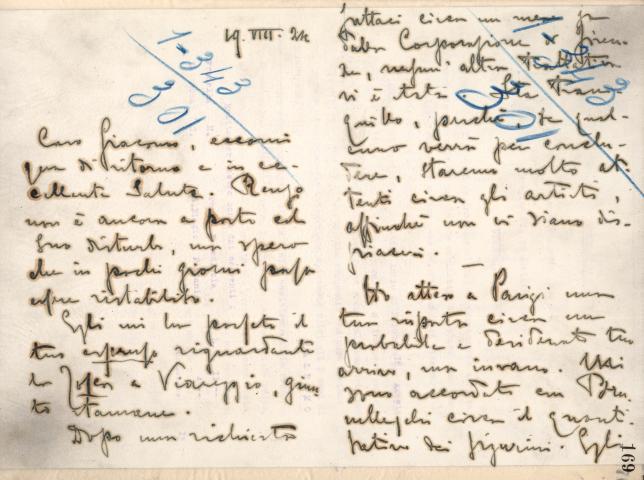 19 VIII. 24
1-343
301
Caro Giacomo, eccomi
qua di ritorno e in ec-
cellente salute. Renzo
non è ancora a posto col
suo disturbo, ma spero
che in pochi giorni possa
esser ristabilito.
Egli mi ha portato il
tuo espresso riguardante
la Tosca a Viareggio, giun-
to stamane.
Dopo una richiesta
fattaci circa un mese fa
dalla Corporazione di Firen-
ze, nessun'altra
vi è stata. Sta tran-
quillo, perchè se qual-
cuno verrà per conclu-
dere, staremo molto at-
tenti circa gli artisti,
affinchè non vi siano dis-
piaceri.
Ho atteso a Parigi una
tua risposta circa un
probabile e desiderato tuo
arrivo, ma invano. Mi
sono accordato con
circa il quanti-
tativo dei figurini. Egli
1-343
301
169